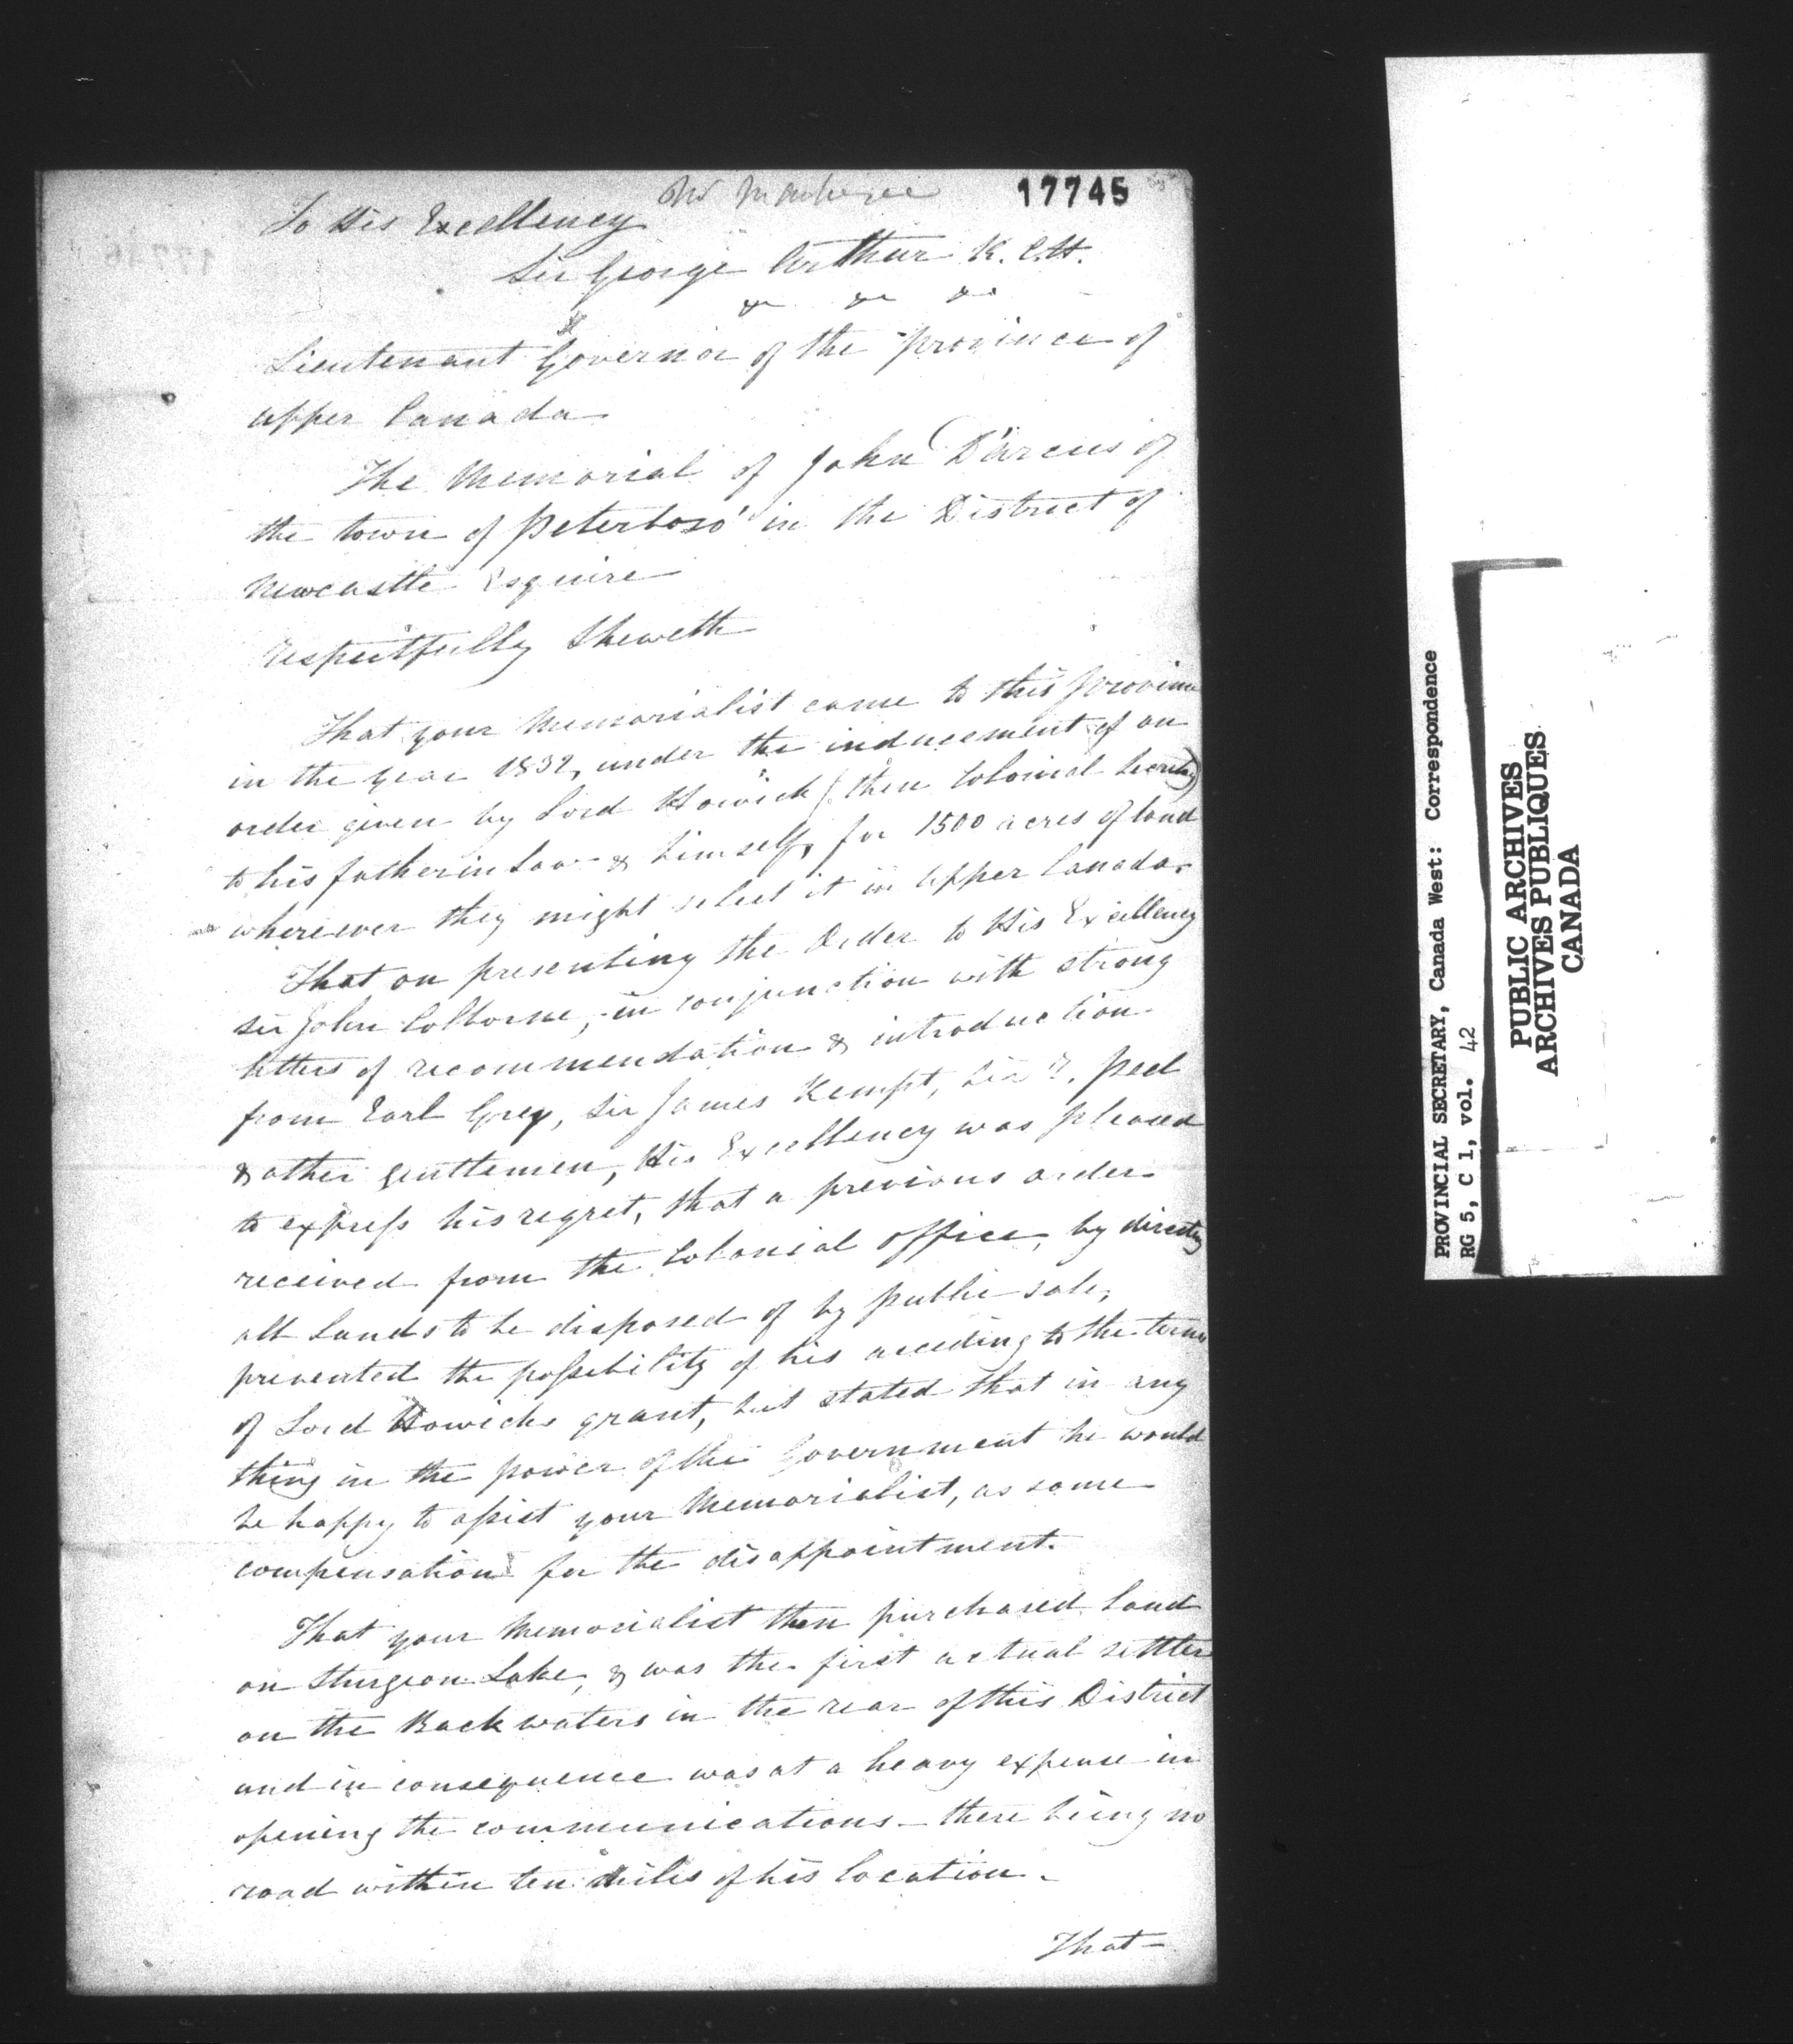 17745
To His Excellency
Sir George Arthur K.C.H.
&c &c &c
Lieutenant Governor of the province of
upper Canada
The Memorial of John D'arcus of
the town of Peterboro' in the District of
Newcastle Esquire
respectfully Sheweth
That your Memorialist came to this province
in the year 1832, under the inducement of an
order given by Lord Howick (then Colonial Secretary)
to his father in Law & himself, for 1500 acres of land
where ever they might select it in Upper Canada.
That on presenting the Order to His Excellency
Sir John Colborne, in conjunction with strong
letters of recommendation & introduction
from Earl Grey, Sir James Kempt, Sir R. Peel
& other gentlemen, His Excellency was pleased
to express his regret, that a previous order
received from the Colonial office, by directing
all Lands to be disposed of by public sale,
prevented the possibility of his acceding to the terms
of Lord Howicks grant, but stated that in any
thing in the power of the Government he would
be happy to assist your Memorialist, as some
compensation for the disappointment.
That your Memorialist then purchased Land
on Sturgeon Lake, & was the first actual settler
on the Back waters in the rear of this District
and in consequence was at a heavy expense in
opening the communications - there being no
road within ten miles of his location.
That
PROVINCIAL SECRETARY, Canada West: Correspondence
RG 5, C 1, vol. 42
PUBLIC ARCHIVES
ARCHIVES PUBLIQUES
CANADA